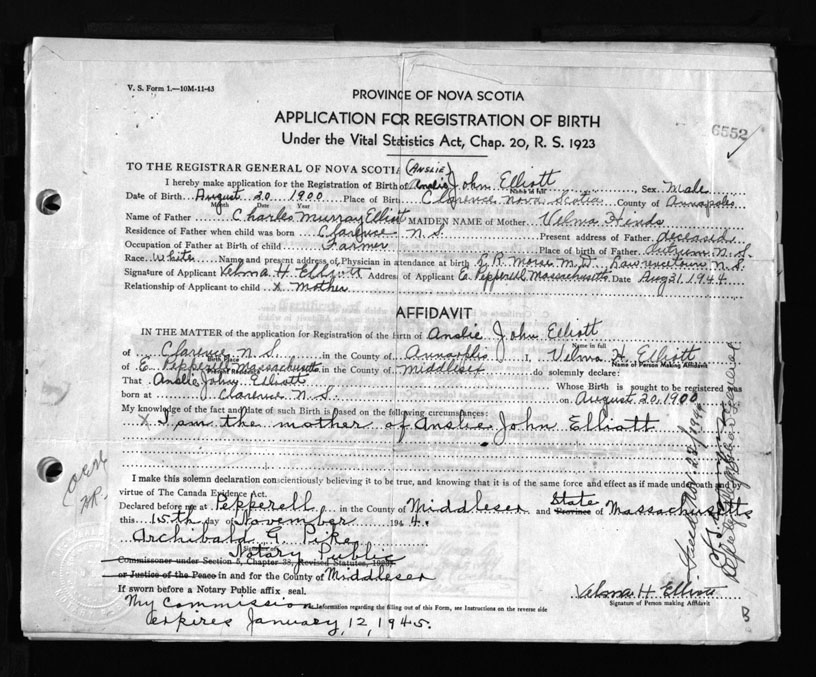 V. S. Form 1.—10M-11-43
PROVINCE OF NOVA SCOTIA
APPLICATION FOR REGISTRATION OF BIRTH
Under the Vital Statistics Act, Chap. 20, R. S. 1923
6552
TO THE REGISTRAR GENERAL OF NOVA SCOTIA (ANSLIE)
I hereby make application for the Registration of Birth of Anslie John Elliott Sex Male
Name in full
Date of Birth August 20 1900 Place of Birth Clarence Nova Scotia County of Annapolis
Month Date Year
Name of Father Charles Murray Elliott MAIDEN NAME of Mother Velma Hinds
Residence of Father when child was born Clarence N.S. Present address of Father deceased
Occupation of Father at Birth of child Farmer Place of birth of Father N.S.
Race White Name and present address of Physician in attendance at birth R. Morse M.D. Lawrencetown N.S.
Signature of Applicant Velma H Elliott Address of Applicant E. Pepperell Massachusetts Date Aug 31 1944
Relationship of Applicant to child X Mother
AFFIDAVIT
IN THE MATTER of the application for Registration of the birth of Anslie John Elliott
Name in full
of Clarence N.S. in the County of Annapolis I, Velma H. Elliott
Birth Place Name of Person Making Affidavit
of E. Pepperell Massachusetts in the County of Middlesex do solemnly declare:
That Anslie John Elliott Whose Birth is sought to be registered was
born at Clarence N.S. on August 20, 1900
My knowledge of the fact and date of such Birth is based on the following circumstances:
X I am the mother of Anslie John Elliott
I make this solemn declaration conscientiously believing it to be true, and knowing that it is of the same force and effect as if made under oath and by
virtue of The Canada Evidence Act.
Declared before me at Pepperell in the County of Middlesex and State Province of Massachusetts
this 15th day of November 1944.
Archibald G. Pike
Notary Public
Commissioner under Section 5, Chapter 38, Revised Statutes, 1923
or Justice of the Peace in and for the County of Middlesex
If sworn before a Notary Public affix seal.
Velma H Elliott
Signature of Person making Affidavit
My Commission
For information regarding the filling out of this Form, see Instructions on the reverse side
expires January 12, 1945.
B